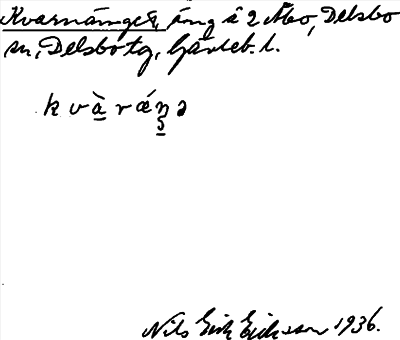 Kvarnänget, äng å 2 Mo, Delsbo
sn, Delsbo tg, Gävleb. l.
kvàrǽŋə
Nils Erik Eriksson 1936.